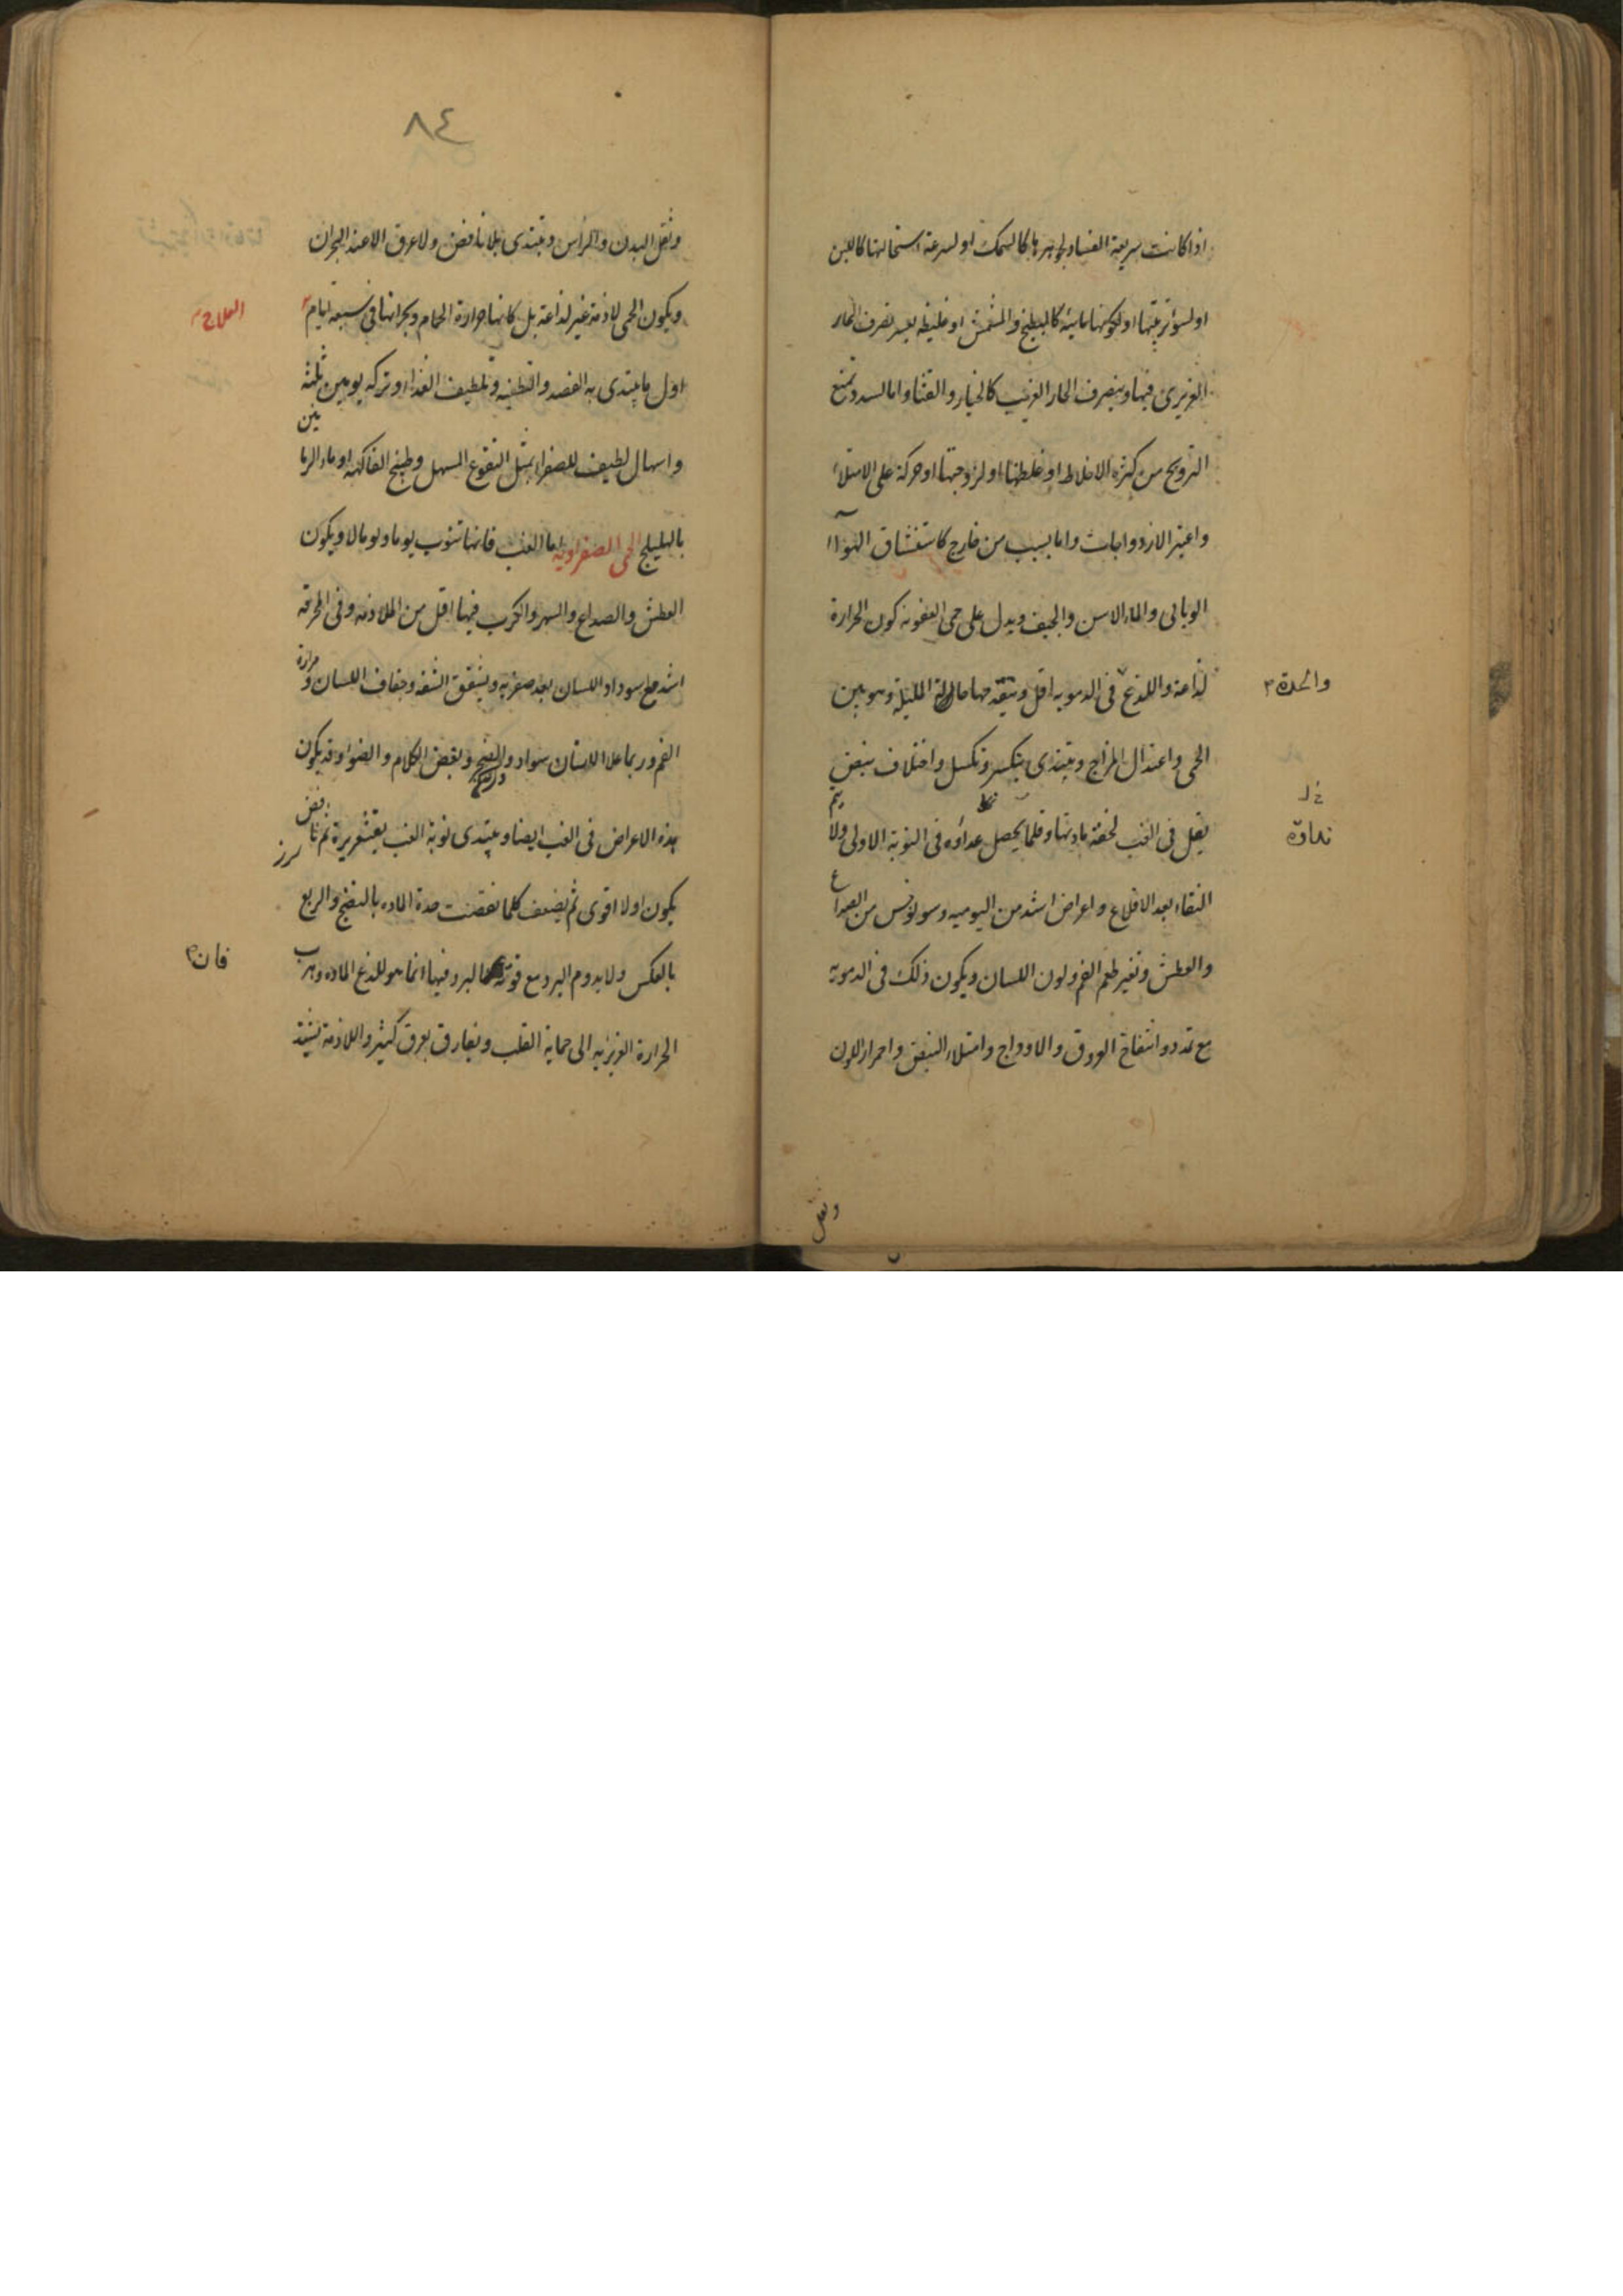 اذا كانت سريعة الفساد لجوهرها كالسمك او لسرعة استحالتها كاللبن
او لسوء ترتيبها او لكونها مائية كالبطيخ والمشمش او غليظه يعسر تصرف الحار
الغريزى فيها ويتصرف الحار الغريب كالخيار والقثاء واما لسدد تمنع
الترويح من كثرة الاخلاط او غلظتها او لزوجتها او حركة على الامتلاء
واعتبر الازدواجات واما بسبب من خارج كاستنشاق الهواء
الوبائى والماء الاسن والجيف ويدل على حمى العفونه كون الحرارة
لذاعة واللذع فى الدمويه اقل ويتقدمها حالة المليلة وهو بين
والحدة
الحمى واعتدال المزاج ويبتدى بتكسر وتكسل واختلاف نبض
يقل فى الغب لخفة مادتها وقلما يحصل عداؤه فى النوبة الاولى ولا يتم
النقاء بعد الاقلاع واعراض اشد من اليوميه وسونوخس من الصداع
والعطش وتغير طعم الفم ولون اللسان ويكون ذلك فى الدمويه
مع تمدد وانتفاخ العروق والاوداج وامتلاء النبض واحمرار اللون
وثقل
٨٤
وثقل البدن والراس ويبتدى بلا نافض ولا عرق الا عند البحران
ويكون الحمى لازمة غير لذاعة بل كانها حرارة الحمام وبحرانها فى سبعة ايام
العلاج
اول ما يبتدى به الفصد والتطفيه وتلطيف الغذاء او تركه يومين ثلثه
واسهال لطيف للصفراء بمثل النقوع المسهل وطبيخ الفاكهه او ماء الرمانين
بالهليلج الحمى الصفراويه اما الغب فانها تنوب يوما ويوما لا ويكون
العطش والصداع والسهر والكرب فيها اقل من اللازمه وفى المحرقة
اشد مع سوداد اللسان بعد صفرته وتشقق الشفه وجفاف اللسان ومرارة
الفم وربما علا الاسنان سواد والضجر وبغض الكلام والضوء وقد يكون
هذه الاعراض فى الغب ايضا ويبتدى نوبة الغب بقشعريرة ثم نافض
يكون اولا اقوى ثم يضعف كلما نقصت حدة الماده بالنضج والربع
بالعكس ولا يدوم البرد مع قوته البرد فيها انما هو للذع الماده وهرب
فان
الحرارة الغريزيه الى حماية القلب ويفارق بعرق كثير واللازمة يشتد